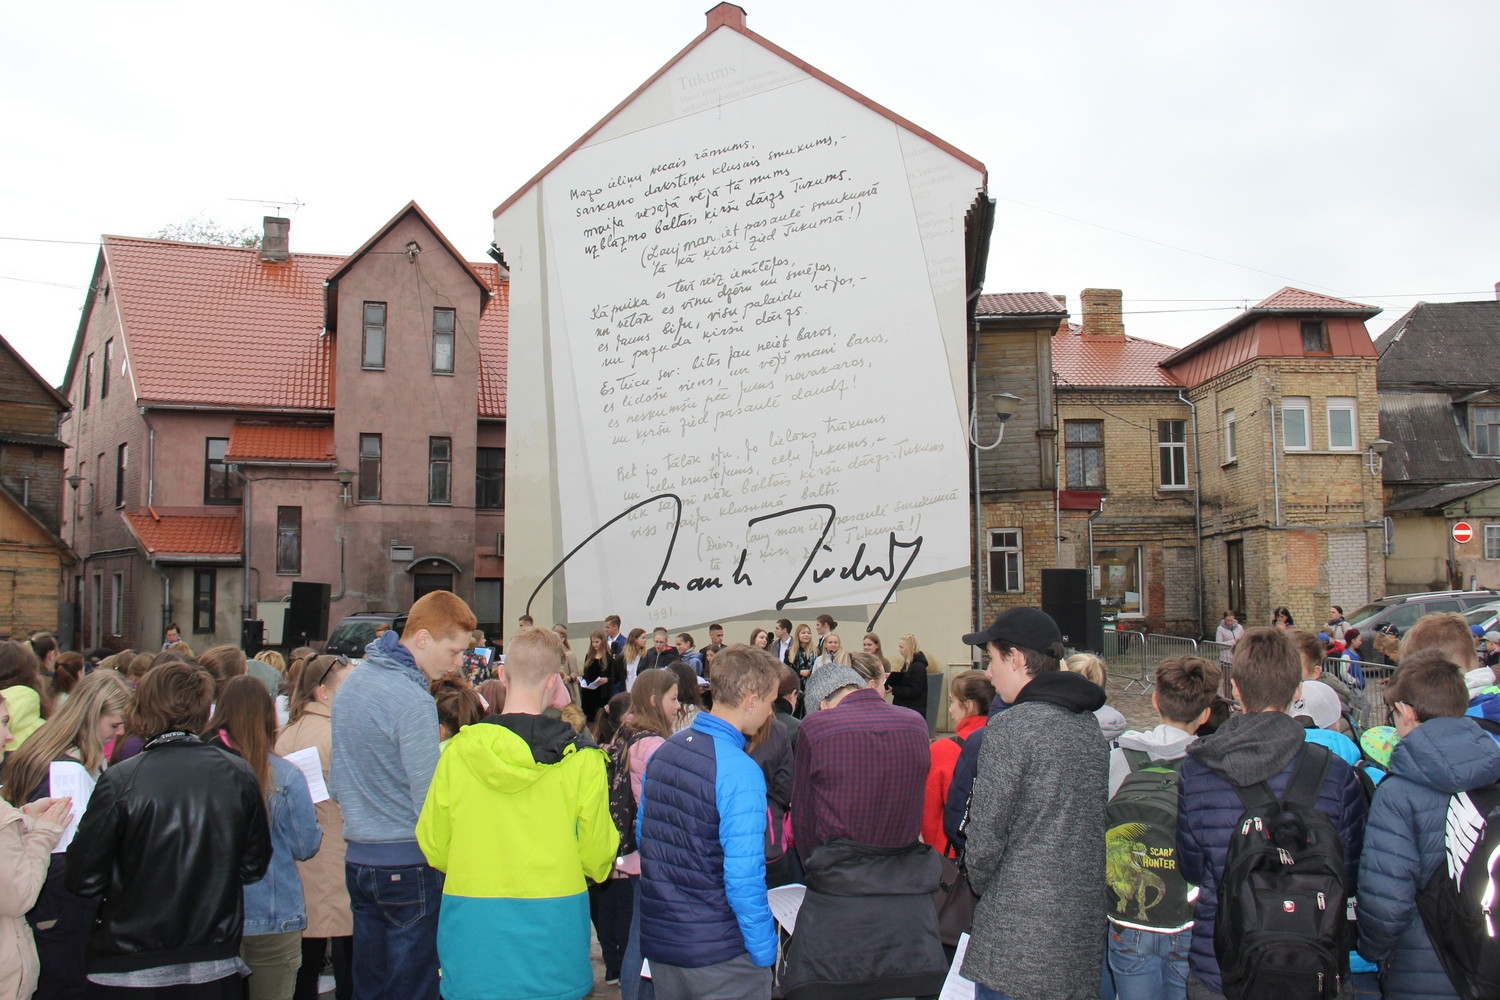 Tukums
Mazo ieliņu vecais rāmums,
sarkano dakstiņu klusais smukums,-
maija vēsajā vējā tā mums
uzblāzmo baltais ķiršu dārzs Tukums.
(Ļauj man iet pasaulē smukumā
tā kā ķirši zied Tukumā!)
Kā puika es tevī reiz iemīlējos,
un vēlāk es vīnu dzēru un smējos,
es jauns biju, visu palaidu vējos,-
un pazuda ķiršu dārzs.
Es teicu sev: bites jau neiet baros,
es lidošu viens, un vējš mani baros,
es neskumšu pēc jums novakaros,
un ķiršu zied pasaulē daudz!
Bet jo tālāk eju, jo lielāks trūkums
un ceļu krustojums, ceļu jukums,-
tik sapnī nāk baltais ķiršu dārzs: Tukums
viss maija klusumā balts.
(Dievs, ļauj man iet pasaulē smukumā
tā kā ķirši zied Tukumā!)
Imants Ziedonis
1991.
SCARY
HUNTER